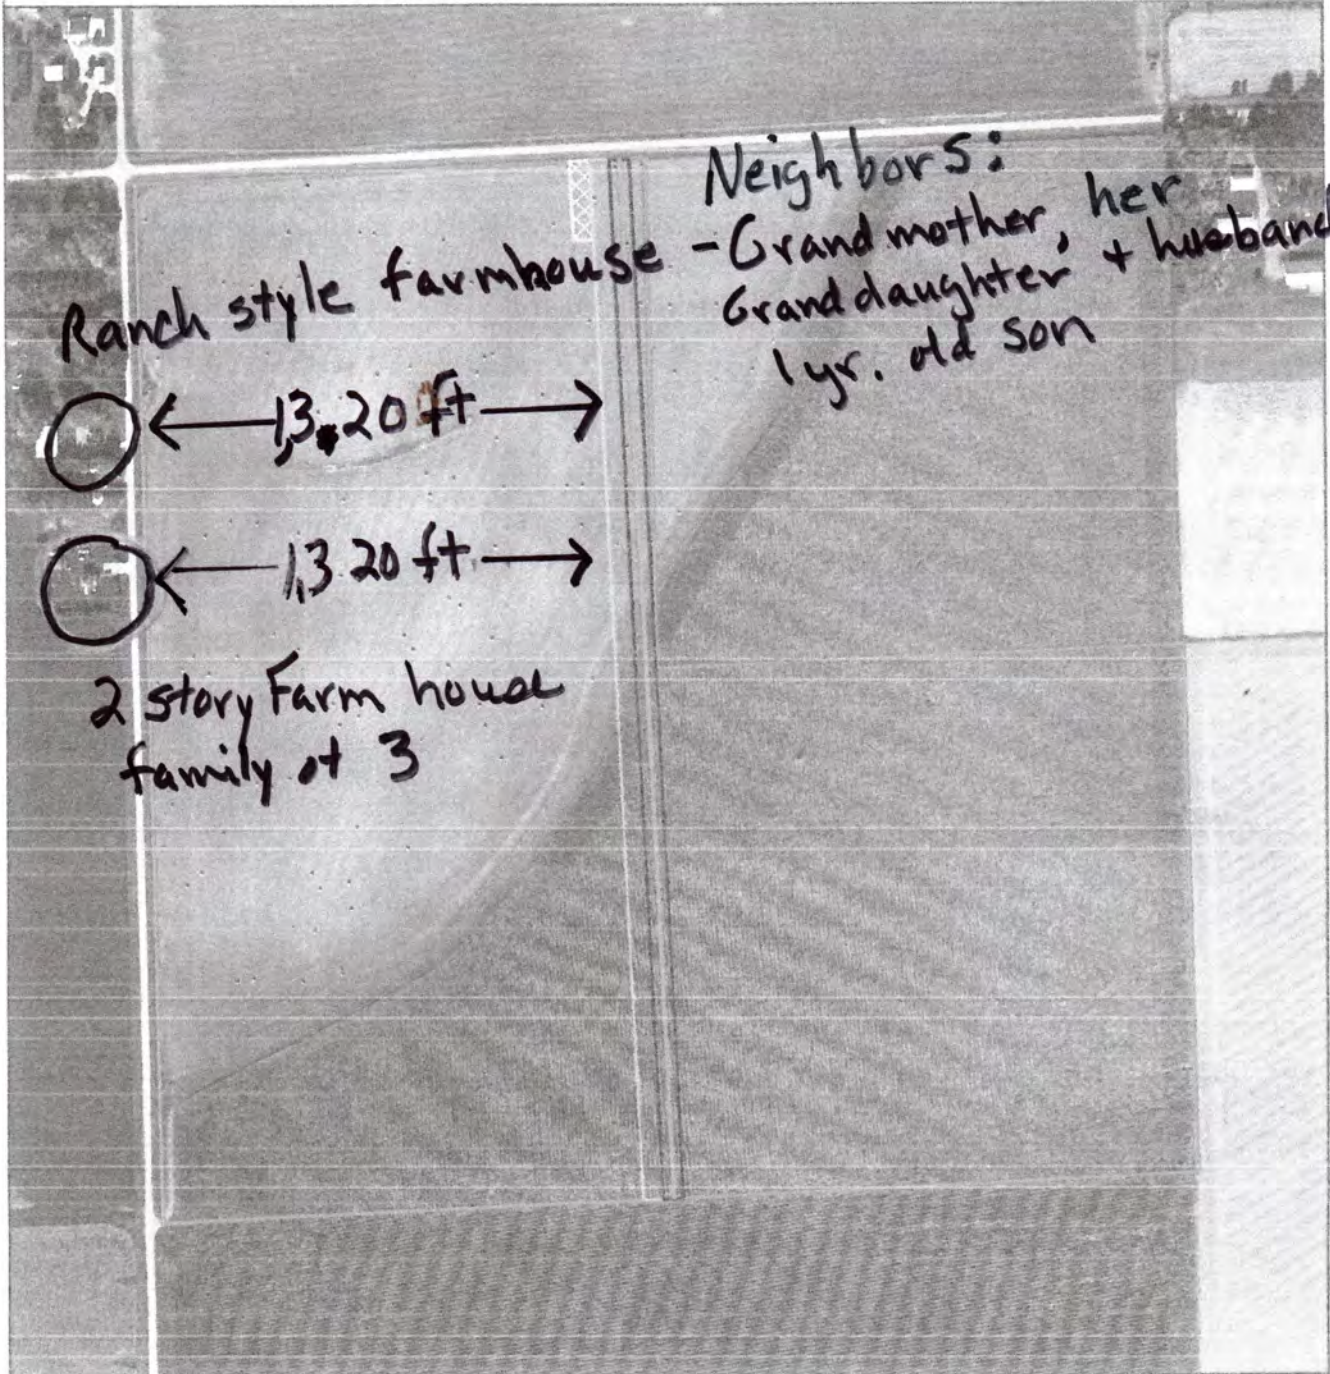 Neighbors:
Ranch style farmhouse - Grandmother, her
Granddaughter + husband
1 yr. old son
1,3.20 ft
1,3 20 ft
2 story Farm house
family of 3